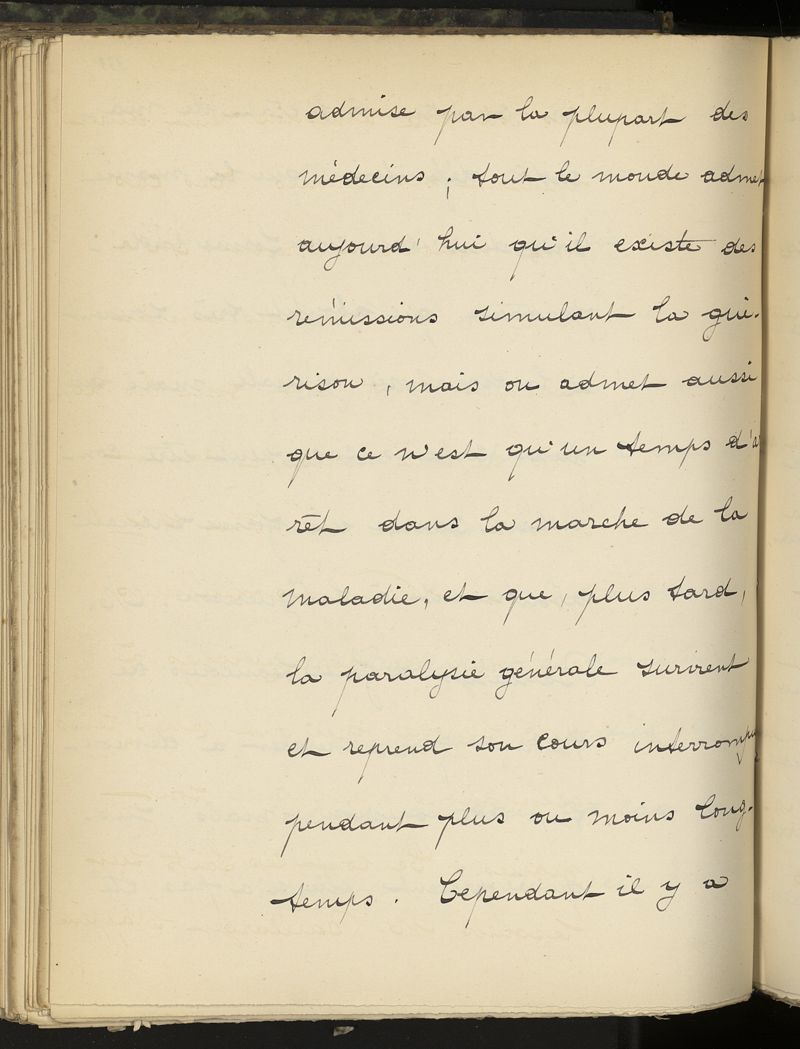 admise par la plupart des
médecins ; tout le monde admet
aujourd'hui qu'il existe des
rémissions simulant la gué-
rison, mais on admet aussi
que ce n'est qu'un temps d'ar
rêt dans la marche de la
maladie, et que, plus tard,
la paralysie générale survient
et reprend son cours interrompu
pendant plus ou moins long-
temps. Cependant il y a